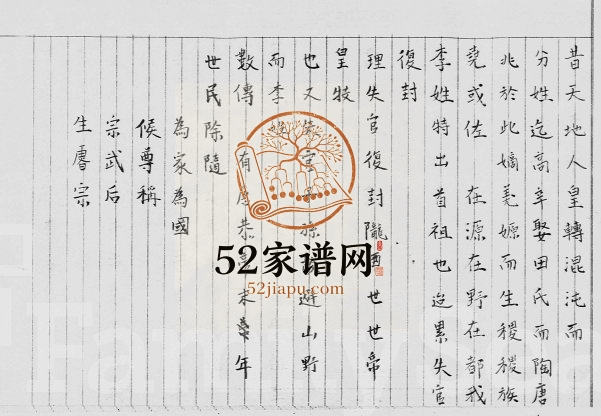 昔天地人皇轉混沌而
分姓迄高辛娶田氏而陶唐
兆於此嫡姜嫄而生稷稷族
堯或佐在源在野在都我
李姓特出首祖也迨累失官
復封
理失官復封隴西世世帝
皇敕
也又官孫避山野
而李
數傳有恭高末年
世民除隨
為家為國
侯尊稱
宗武后
生睿宗
52家谱网
52jiapu.com